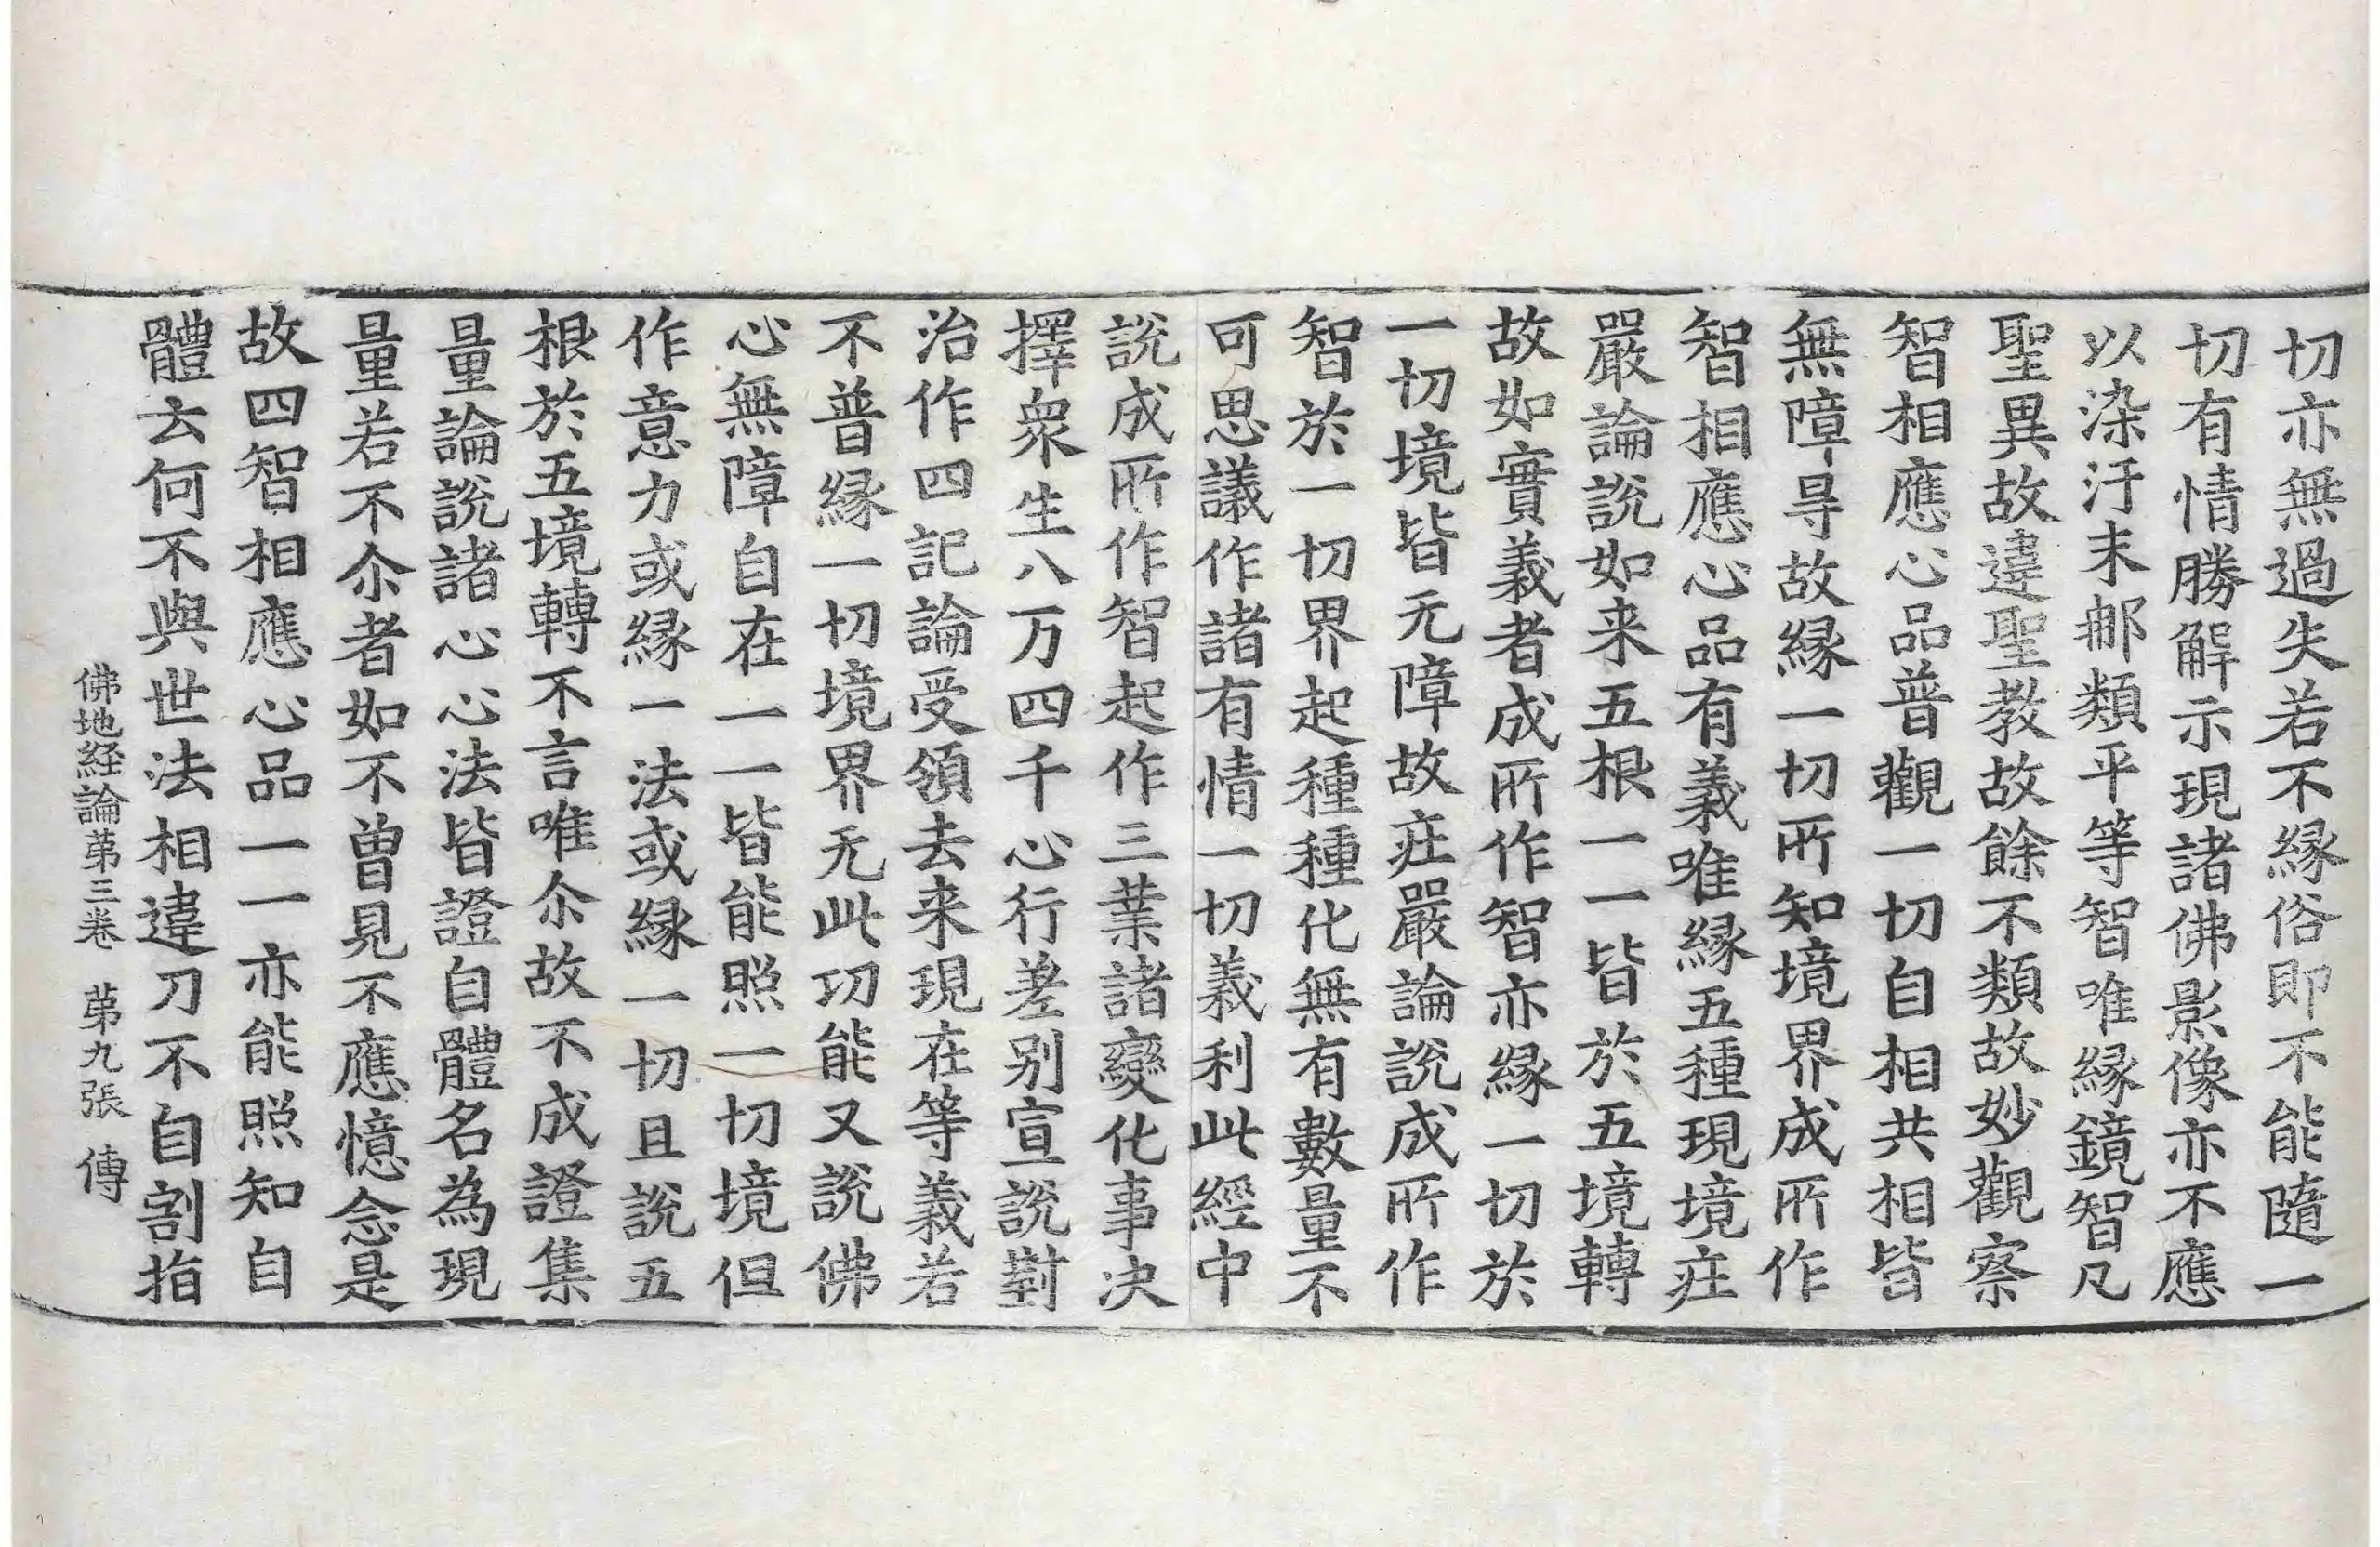 切亦無過失若不縁俗即不能隨一
切有情勝解示現諸佛影像亦不應
以染汙末那類平等智唯縁鏡智凡
聖異故違聖教故餘不類故妙觀察
智相應心品普觀一切自相共相皆
無障㝵故縁一切所知境界成所作
智相應心品有義唯縁五種現境㽵
嚴論說如来五根一一皆於五境轉
故如實義者成所作智亦縁一切於
一切境皆无障故㽵嚴論說成所作
智於一切界起種種化無有數量不
可思議作諸有情一切義利此經中
說成所作智起作三業諸變化事决
擇衆生八万四千心行差别宣說對
治作四記論受領去来現在等義若
不普縁一切境界无此功能又說佛
心無障自在一一皆能照一切境但
作意力或縁一法或縁一切且說五
根於五境轉不言唯尒故不成證集
量論說諸心心法皆證自體名為現
量若不尒者如不曾見不應憶念是
故四智相應心品一一亦能照知自
體云何不與世法相違刀不自割指
佛地経論苐三卷 苐九張 傳